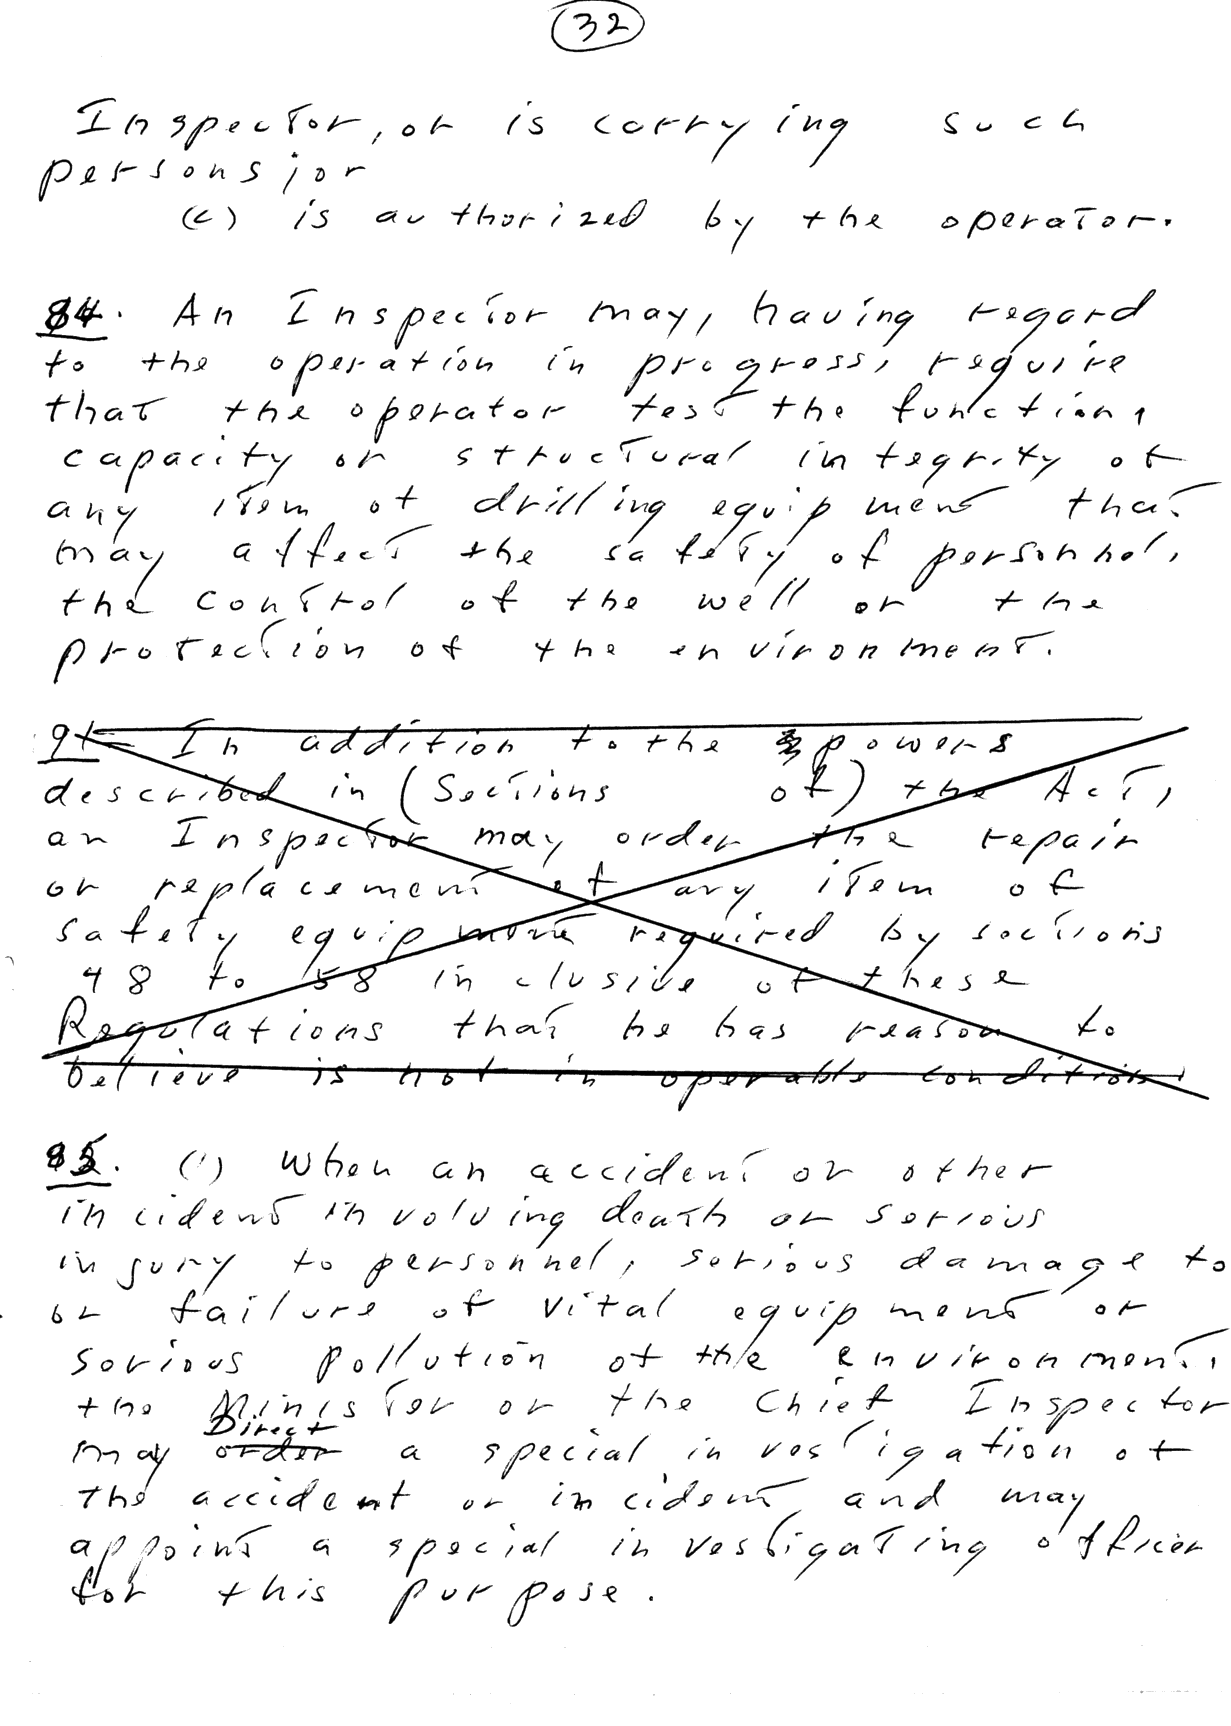 32
Inspector, or is carrying such
persons; or
(c) is authorized by the operator.
84. An Inspector may, having regard
to the operation in progress, require
that the operator test the function,
capacity or structural integrity of
any item of drilling equipment that
may affect the safety of personnel,
the control of the well or the
protection of the environment.
91 In addition to the powers
described in (Sections of) the Act,
an Inspector may order the repair
or replacement of any item of
safety equipment required by sections
48 to 58 inclusive of these
Regulations that he has reason to
believe is not in operable condition.
85. (1) When an accident or other
incident involving death or serious
injury to personnel, serious damage to
or failure of vital equipment or
serious pollution of the environment,
the Minister or the Chief Inspector
Direct
may order a special investigation of
the accident or incident and may
appoint a special investigating officer
for this purpose.